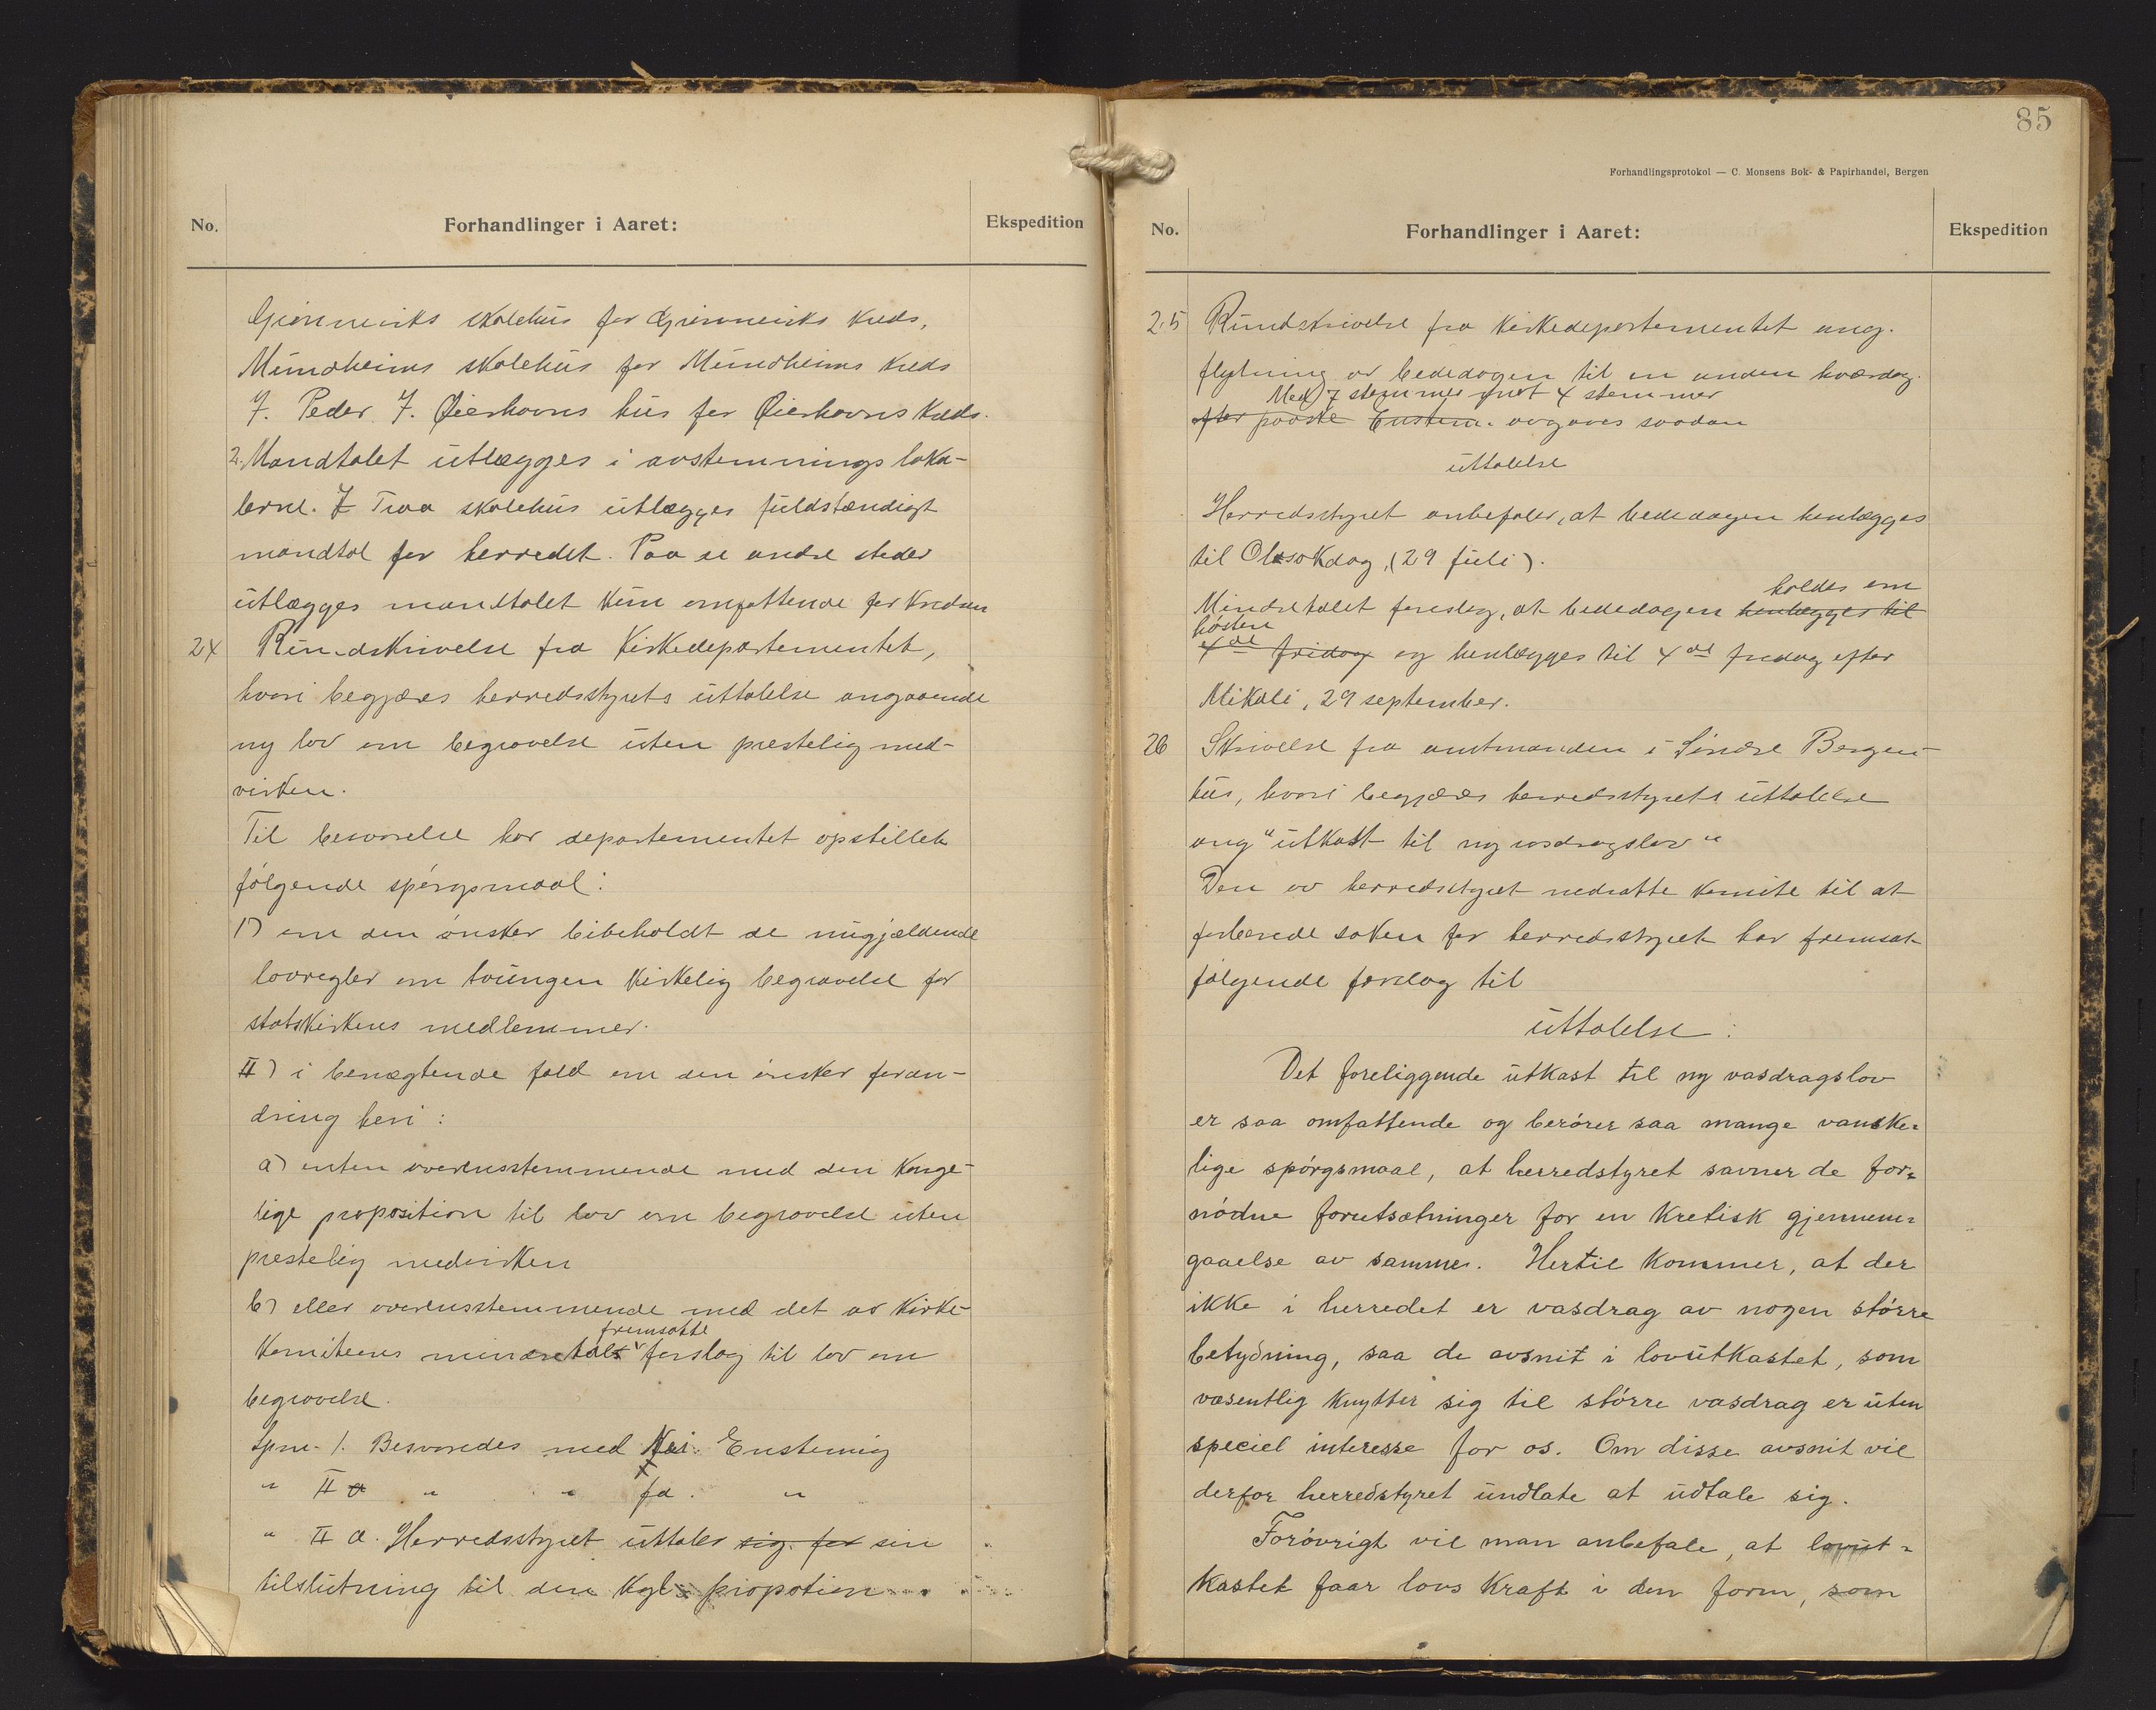 No.
Forhandlinger i Aaret:
Ekspedition
Gjønneviks skolehus for Gjønneviks kreds,
Mundheims skolehus for Mundheims kreds
J. Peder J. Øierhavns hus for Øierhavns kreds.
2. Mandtalet utlægges i avstemningsloka-
lerne. I Traa skolehus utlægges fuldstændigt
mandtal for herredet. Paa de andre steder
utlægges mandtalet kun omfattende for kredsen
24 Rundskrivelse fra Kirkedepartementet,
hvori begjæres herredsstyrets uttalelse angaaende
ny lov om begravelse uten prestelig med-
virken.
Til besvarelse har departementet opstillet
følgende spørgsmaal:
1) om den ønsker bibeholdt de nugjældende
lovregler om tvungen kirkelig begravelse for
statskirkens medlemmer.
II) i benægtende fald om den ønsker foran-
dring heri:
a) enten overensstemmende med den konge-
lige proposition til lov om begravelse uten
prestelig medvirken
b) eller overensstemmende med det av kirke-
fremsatte
komiteens mindretals forslag til lov om
begravelse.
Spm. 1. Besvaredes med Nei. Enstemig
" II a " " Ja. "
" II a. Herredsstyret uttaler sig for sin
tilslutning til den kgl. propotion
85
Forhandlingsprotokol — C. Monsens Bok- & Papirhandel, Bergen
No.
Forhandlinger i Aaret:
Ekspedition
25 Rundskrivelse fra kirkedepartementet ang.
flytning av bededagen til en anden hverdag.
Med 7 stemmer mot 4 stemmer
efter paaske Enstem. avgaves saadan
uttalelse
Herredsstyret anbefaler, at bededagen henlægges
til Olsokdag, (29 juli).
holdes om
Mindretalet foreslog, at bededagen henlægges til
høsten
4de fridag og henlægges til 4de fredag efter
Mikali, 29 september.
26 Skrivelse fra amtmanden i Søndre Bergen-
hus, hvori begjæres herredsstyrets uttalelse
ang "utkast til ny vasdragslov"
Den av herredsstyret nedsatte komite til at
forberede saken for herredsstyret har fremsat
følgende forslag til
uttalelse:
Det foreliggende utkast til ny vasdragslov
er saa omfattende og berører saa mange vanske-
lige spørgsmaal, at herredstyret savner de for-
nødne forutsætninger for en kretisk gjennem-
gaaelse av samme. Hertil kommer, at der
ikke i herredet er vasdrag av nogen større
betydning, saa de avsnit i lovutkastet, som
væsentlig knytter sig til større vasdrag er uten
speciel interesse for os. Om disse avsnit vil
derfor herredstyret undlate at udtale sig.
Forøvrigt vil man anbefale, at lovut-
kastet faar lovs kraft i den form, som